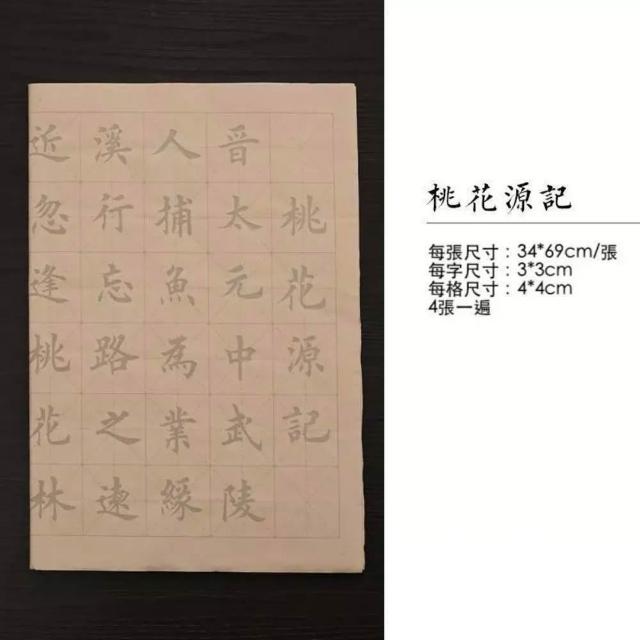 桃花源記
晋太元中武陵
人捕魚為業緣
溪行忘路之遠
近忽逢桃花林
桃花源記
每張尺寸：34*69cm/張
每字尺寸：3*3cm
每格尺寸：4*4cm
4張一遍